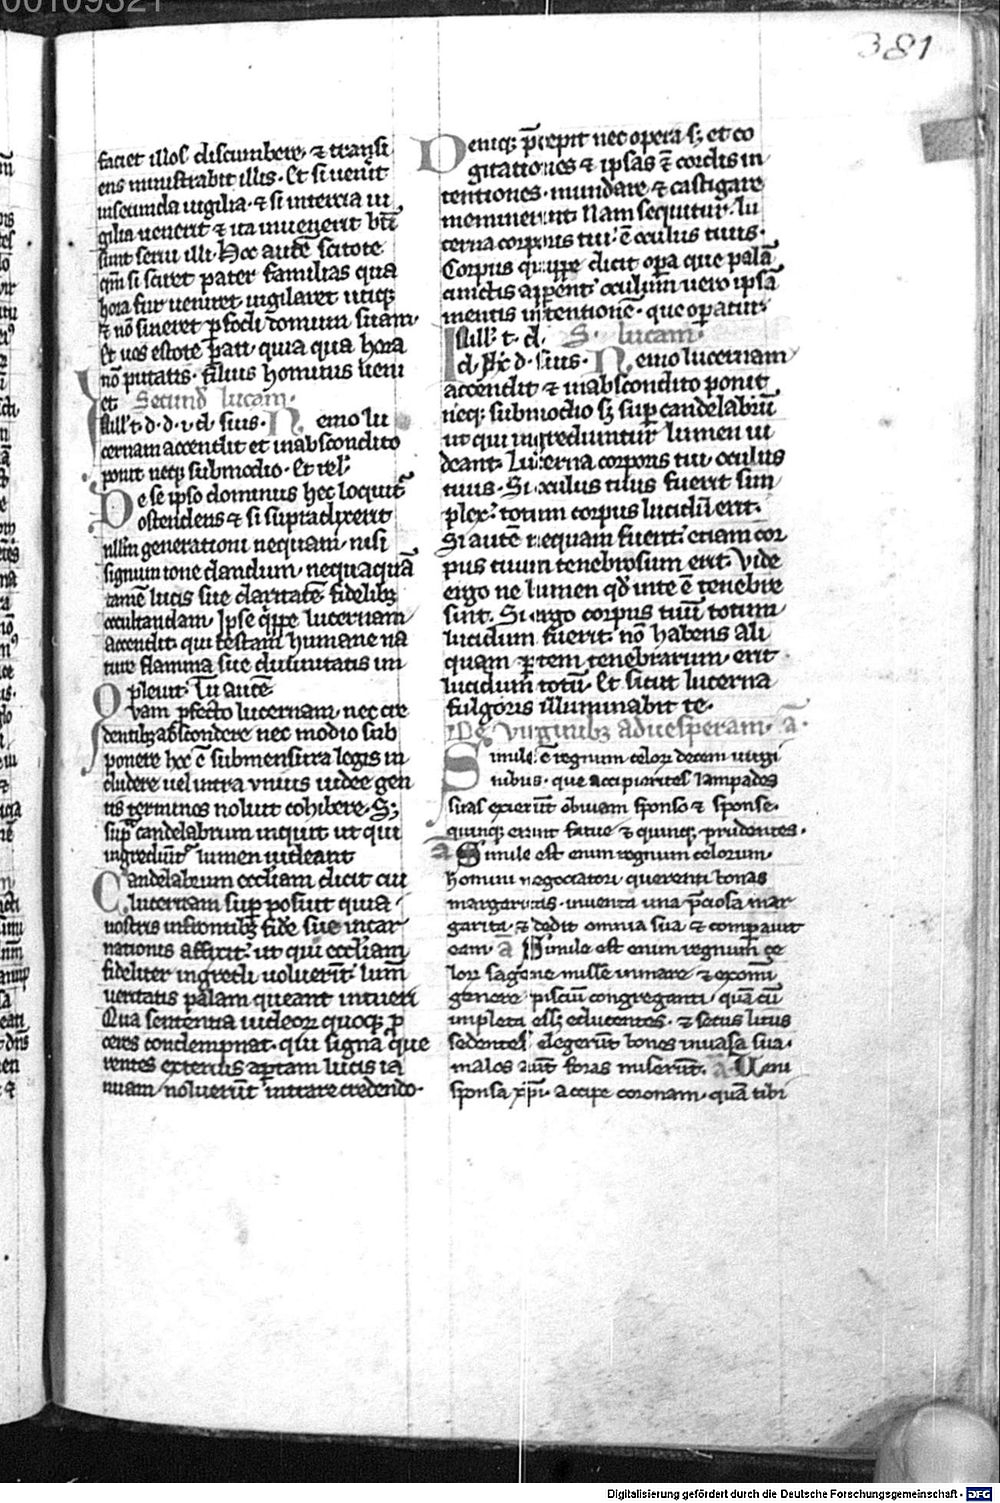 00109321
381
faciet illos discumbere. ⁊ transi
ens ministrabit illis. Et si uenit
in secunda uigilia. ⁊ si in tercia ui
gilia uenerit ⁊ ita inuenerit bt̄i
sunt serui illi. Hoc autē scitote
qm̄ si sciret pater familias qua
hora fur ueniret uigilaret utiq;
⁊ nō sineret p̄fodi domum suam.
Et uos estote parati. quia qua hora
nō putatis. filius hominis ueni
et Secund̄ lucam.
Jn ill. t. d. d. v. d. suis. Nemo lu
cernam accendit et in abscondito
ponit neq; submodio. Et rel.
De se ipso dominus hec loquit̄
ostendens ⁊ si supra dixerit
nllm̄ generationi nequam. nisi
signum ione dandum. nequaquā
tamē lucis sue claritatē fidelibꝫ
occultandam. Ipse q̄ppe lucernam
accendit. qui testam humane na
ture flamma sue diuinitatis im
pleuit. Tu autē
Quam p̄fecto lucernam. nec cre
dentibꝫ abscondere nec modio sub
ponere hoc ē sub mensura legis in
cludere uel intra vnius iudee gen
tis terminos noluit cohibere. Sꝫ
sup̄ candelabrum inquit ut qui
ingrediūt̄ lumen uideant
Candelabrum eccliam dicit cui
lucernam sup̄posuit quia
nostris in frontibꝫ fidē sue incar
nationis affixit. ut qui eccliam
fideliter ingredi uoluerīt. lum̄
ueritatis palam queant intueri
Qua sententia iudeoꝝ quoq; p
ceres condempnat. qui signa que
rentes exterius aptam lucis ia
nuam noluerūt intrare credendo.
Deniq; p̄cepit nec opera sꝫ et co
gitationes ⁊ ipsas ē cordis in
tentiones. mundare ⁊ castigare
meminerint. Nam sequitur. Lu
cerna corporis tui. ē oculus tuus.
Corpus quippe dicit opa que palā
cunctis apparent. oculum uero ipsā
mentis intentionē. que opatur.
Jn ill. t. d. S. lucam.
d. d. suis. Nemo lucernam
accendit ⁊ in abscondito ponit
neq; submodio sꝫ sup candelabrū
ut qui ingrediuntur lumen ui
deant. Lucerna corporis tui oculus
tuus. Si oculus tuus fuerit sim
plex. totum corpus lucidū erit.
Si autē nequam fuerit. etiam cor
pus tuum tenebrosum erit. Vide
ergo ne lumen qd̄ in te ē tenebre
sint. Si ergo corpus tuū totum
lucidum fuerit. nō habens ali
quam ptem tenebrarum. erit
lucidum totū. Et sicut lucerna
fulgoris illuminabit te.
De virginibꝫ ad uesperam. ā.
Simile ē regnum celoꝝ decem uirgi
nibus. que accipientes lampades
suas exierūt obuiam sponso ⁊ sponse.
quinq; erant fatue ⁊ quinq; prudentes.
ā Simile est enim regnum celorum.
homini negociatori querenti bonas
margaritas. inuenta una p̄ciosa mar
garita. ⁊ dedit omnia sua ⁊ compauit
eam. ā Simile est enim regnum ce
loꝝ sagene misse in mare. ⁊ ex omī
genere pisciū congreganti. quā cū
impleta ess; educentes. ⁊ secus litus
sedentes elegerūt bonos in uasa sua.
malos aut̄ foras miserūt. ā Veni
sponsa xp̄i. accipe coronam. quā tibi
Digitalisierung gefördert durch die Deutsche Forschungsgemeinschaft - DFG